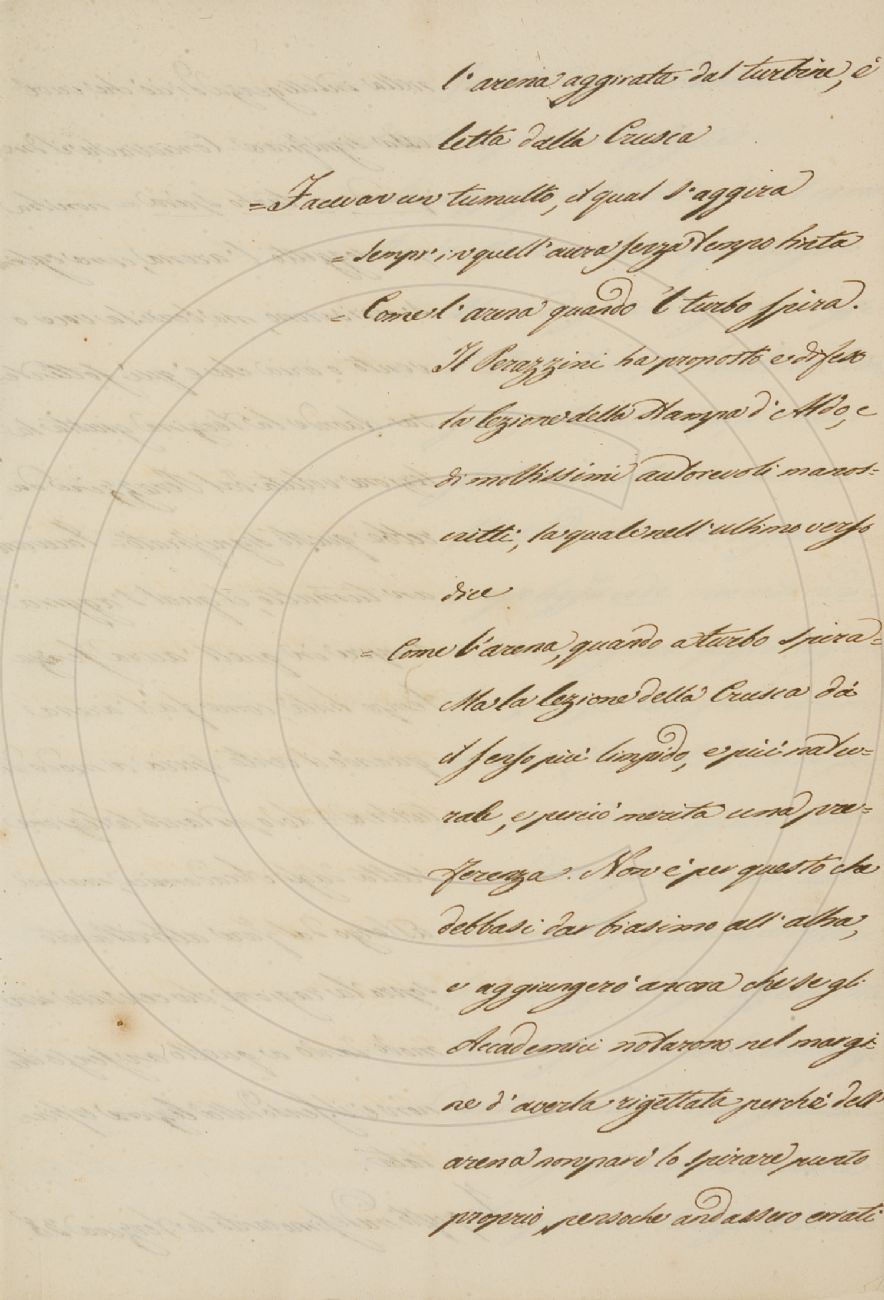 l'arena aggirata dal turbine, è
letta dalla Crusca
= Facevan un tumulto, il qual s'aggira
= Sempr'in quell'aura senza tempo tinta
= Come l'arena quando 'l turbo spira.
Il Perazzini ha proposto e difeso
la lezione della Stampa d'Aldo, e
di moltissimi autorevoli manos=
critti, la quale nell'ultimo verso
dice
= Come l'arena, quando a turbo spira=
Ma la lezione della Crusca dà
il senso più limpido, e più natu=
rale, e perciò merita una pre=
ferenza. Non è per questo che
debbasi dar biasimo all'altra,
e aggiungerò ancora che se gli
Accademici notarono nel margi=
ne d'averla rigettata perchè dell'
arena non pare lo spirare punto
proprio, penso che andassero errati